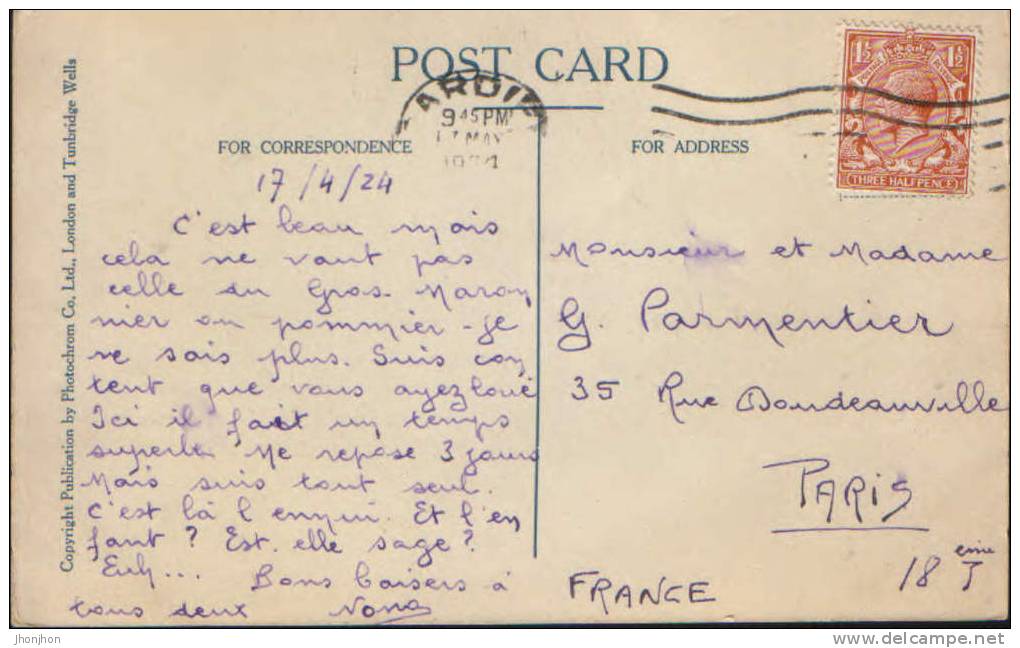 POST CARD
Copyright Publication by Photochrom Co., Ltd., London and Tunbridge Wells
ARDI
9 45 PM
17 MAY
FOR CORRESPONDENCE
FOR ADDRESS
1½ POSTAGE 1½
THREE HALFPENCE
17/4/24
C'est beau mais
cela ne vaut pas
celle du Gros Maron
nier ou pommier - je
ne sais plus. Suis con
tent que vous ayez loué
Ici il fait un temps
superbe Me repose 3 jours
Mais suis tout seul.
C'est là l'ennui. Et l'en
fant ? Est-elle sage ?
Euh... Bons baisers à
tous deux Nono
Monsieur et Madame
G. Parmentier
35 Rue Doudeauville
PARIS
18 eme
FRANCE
jhonjhon
www.delcampe.net